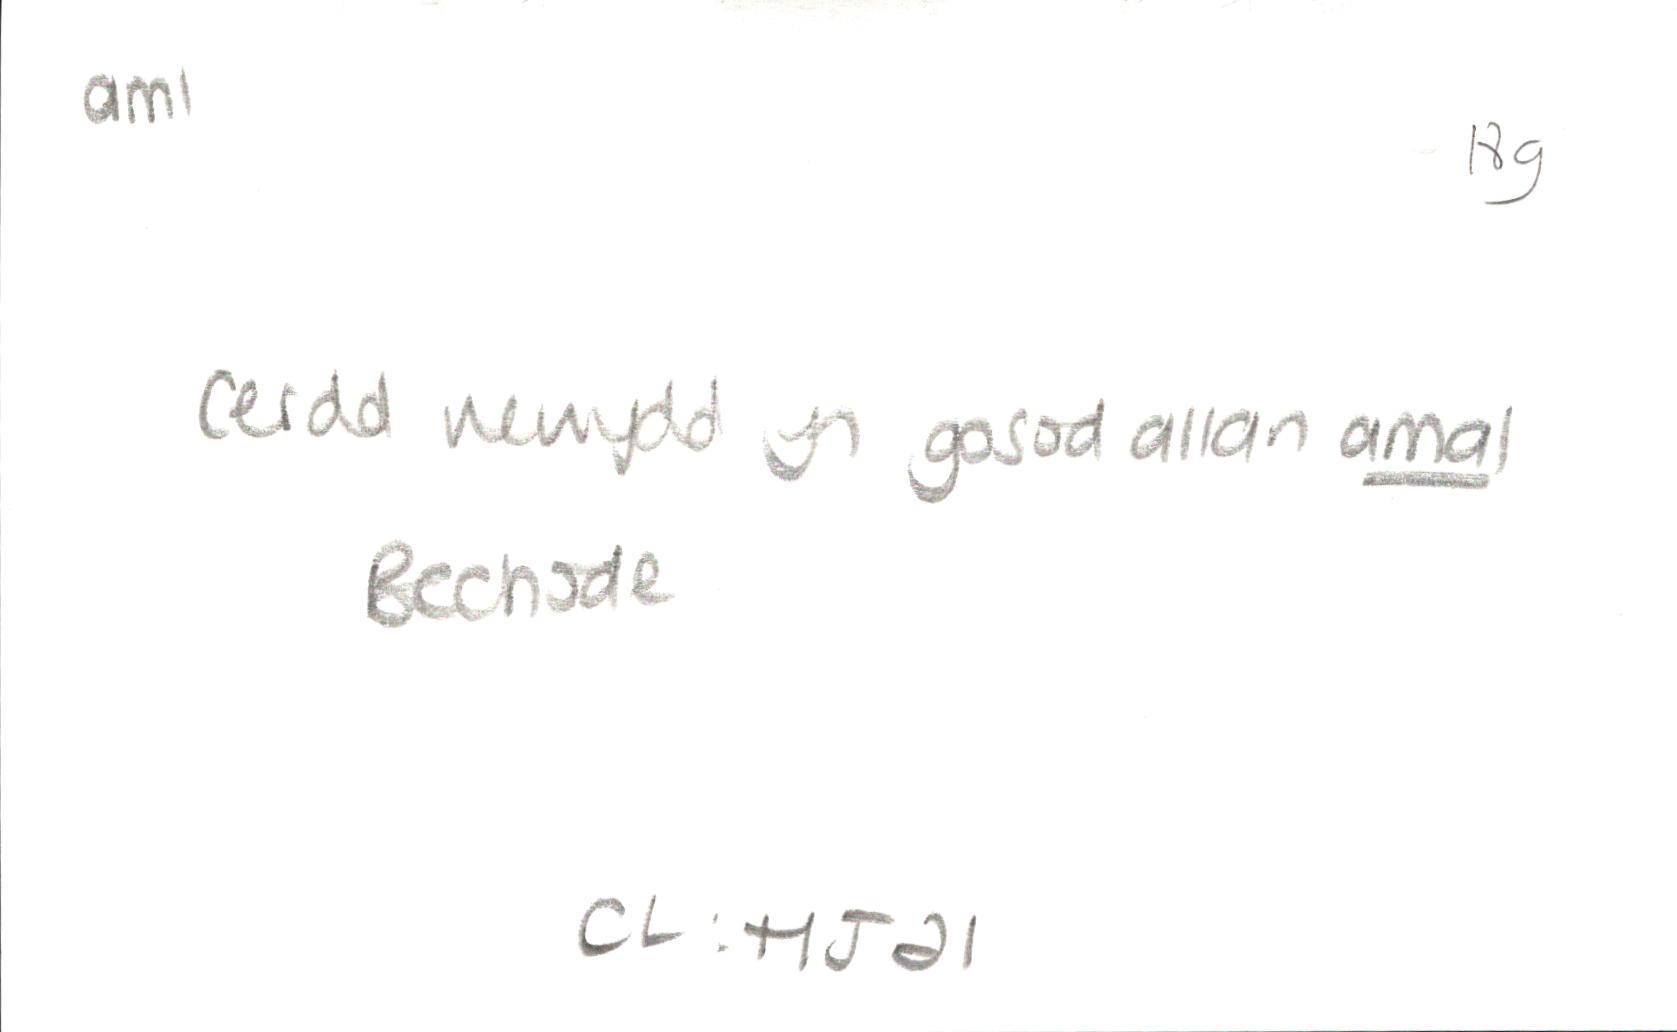 aml
18g
Cerdd newydd yn gosod allan amal
Bechode
CL: HJ21